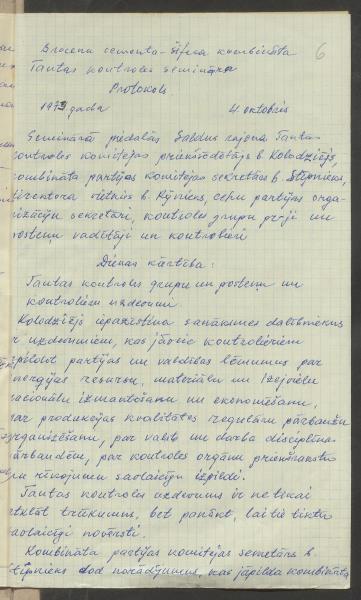 6
Brocenu cementa-šifera kombināta
Tautas kontroles semināra
Protokols
1973 gada 4 oktobris
Seminārā piedalās Saldus rajona Tautas
kontroles komitejas priekšsēdētājs b. Kolodziejs,
kombināta partijas komitejas sekretārs b. Stepnieks,
direktora vietnieks b. Rijnieks, cehu partijas orga-
nizāciju sekretāri, kontroles grupu pr-ji un
posteņu vadītāji un kontrolieri
Dienas kārtība:
Tautas kontroles grupu un posteņu un
kontrolieru uzdevumi
Kolodziejs iepazīstina sanāksmes dalībniekus
ar uzdevumiem, kas jāveic kontrolieriem
izpildot partijas un valdības lēmumus par
enerģijas resursu, materiālu un izejvielu
racionālu izmantošanu un ekonomēšanu,
par produkcijas kvalitātes regulāru pārbaužu
organizēšanu, par valsts un darba disciplīnas
pārbaudēm, par kontroles orgānu priekšrakstu
un rīkojumu savlaicīgu izpildi.
Tautas kontroles uzdevums ir ne tikai
atklāt trūkumus, bet panākt, lai tie tiktu
savlaicīgi novērsti.
Kombināta partijas komitejas sekretārs b.
Stepnieks dod norādījumus, kas jāpilda kombināta